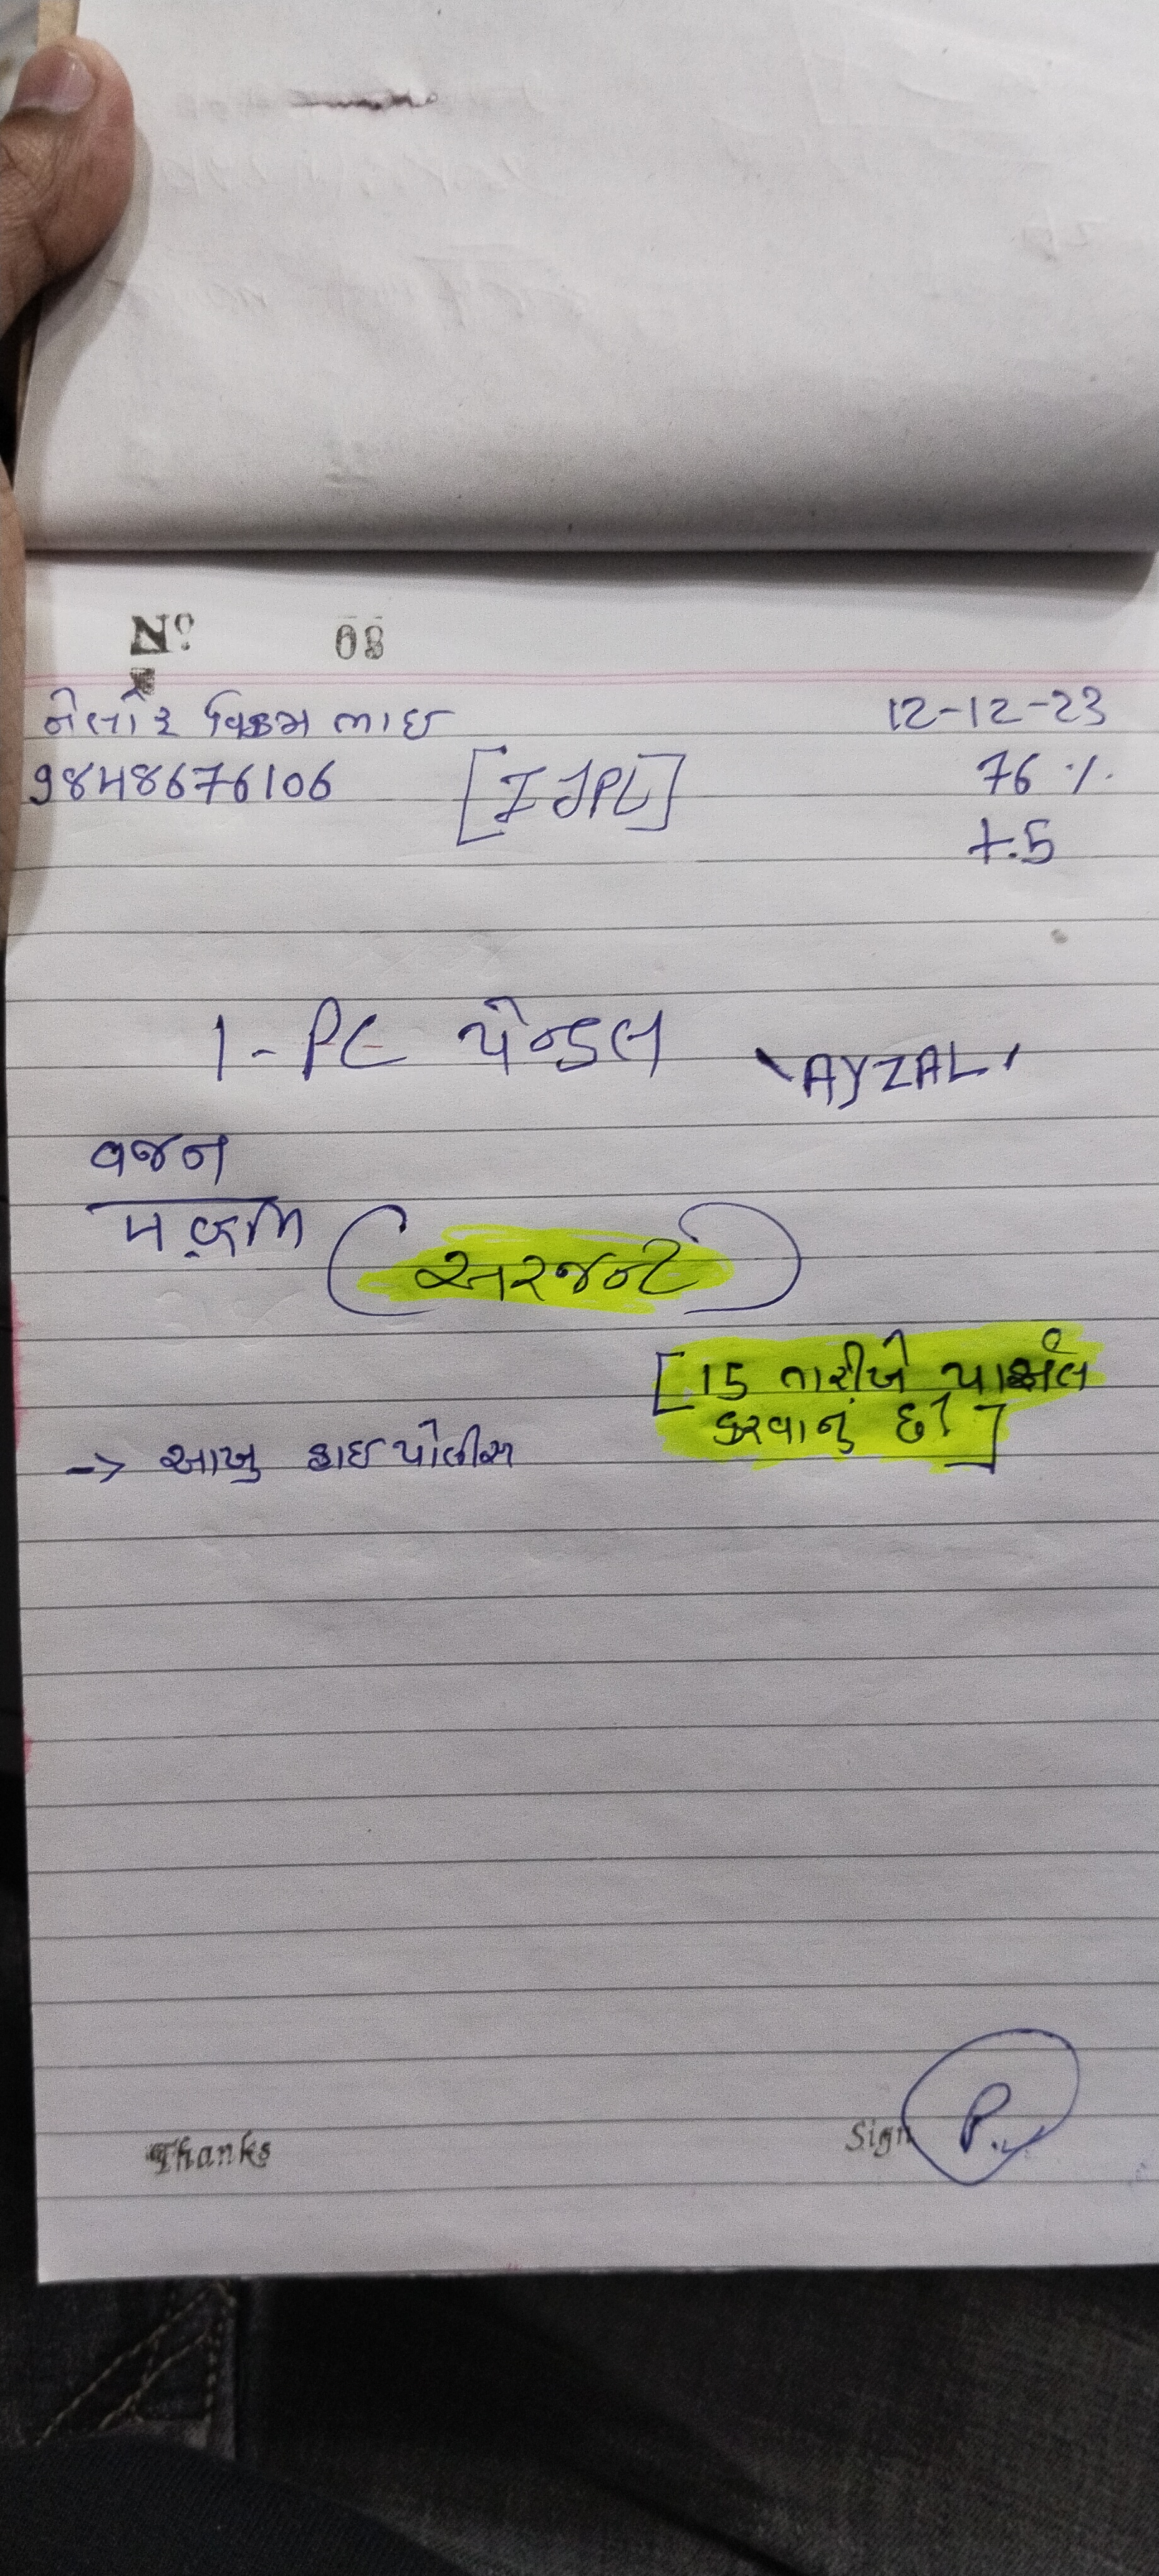 Nº 08
નેલોર વિક્રમ ભાઇ 12-12-23
9848676106 [IJPL] 76 %
+.5
1 - PC પેન્ડલ 'AYZAL'
વજન
(અરજન્ટ)
[15 તારીખે પાર્સલ
કરવાનું છે]
-> આખુ હાઇ પોલીસ
Thanks Sign P.